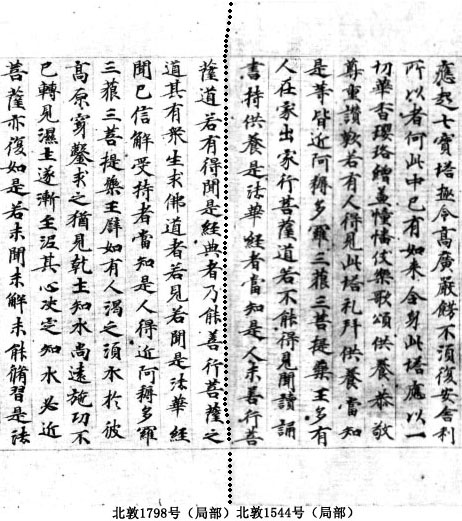 應起七寶塔極令高廣嚴餝不須復安舍利
所以者何此中已有如來全身此塔應以一
切華香瓔珞繒蓋幢幡伎樂歌頌供養恭敬
尊重讚歎若有人得見此塔礼拜供養當知
是等皆近阿耨多羅三藐三菩提藥王多有
人在家出家行菩薩道若不能得見聞讀誦
書持供養是法華經者當知是人未善行菩
薩道若有得聞是經典者乃能善行菩薩之
道其有衆生求佛道者若見若聞是法華經
聞已信解受持者當知是人得近阿耨多羅
三藐三菩提藥王譬如有人渴乏須水於彼
高原穿鑿求之猶見乹土知水尚遠施功不
已轉見濕土遂漸至泥其心决定知水必近
菩薩亦復如是若未聞未解未能脩習是法
北敦1798号（局部）北敦1544号（局部）